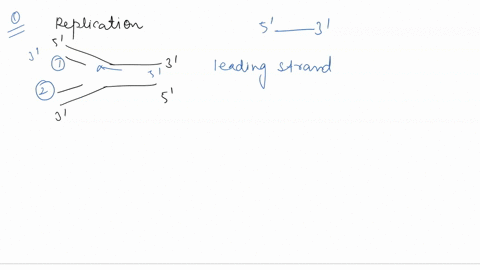 ①
Replication
5' 3'
5'
3'
①
3'
5'
leading strand
②
5'
3'